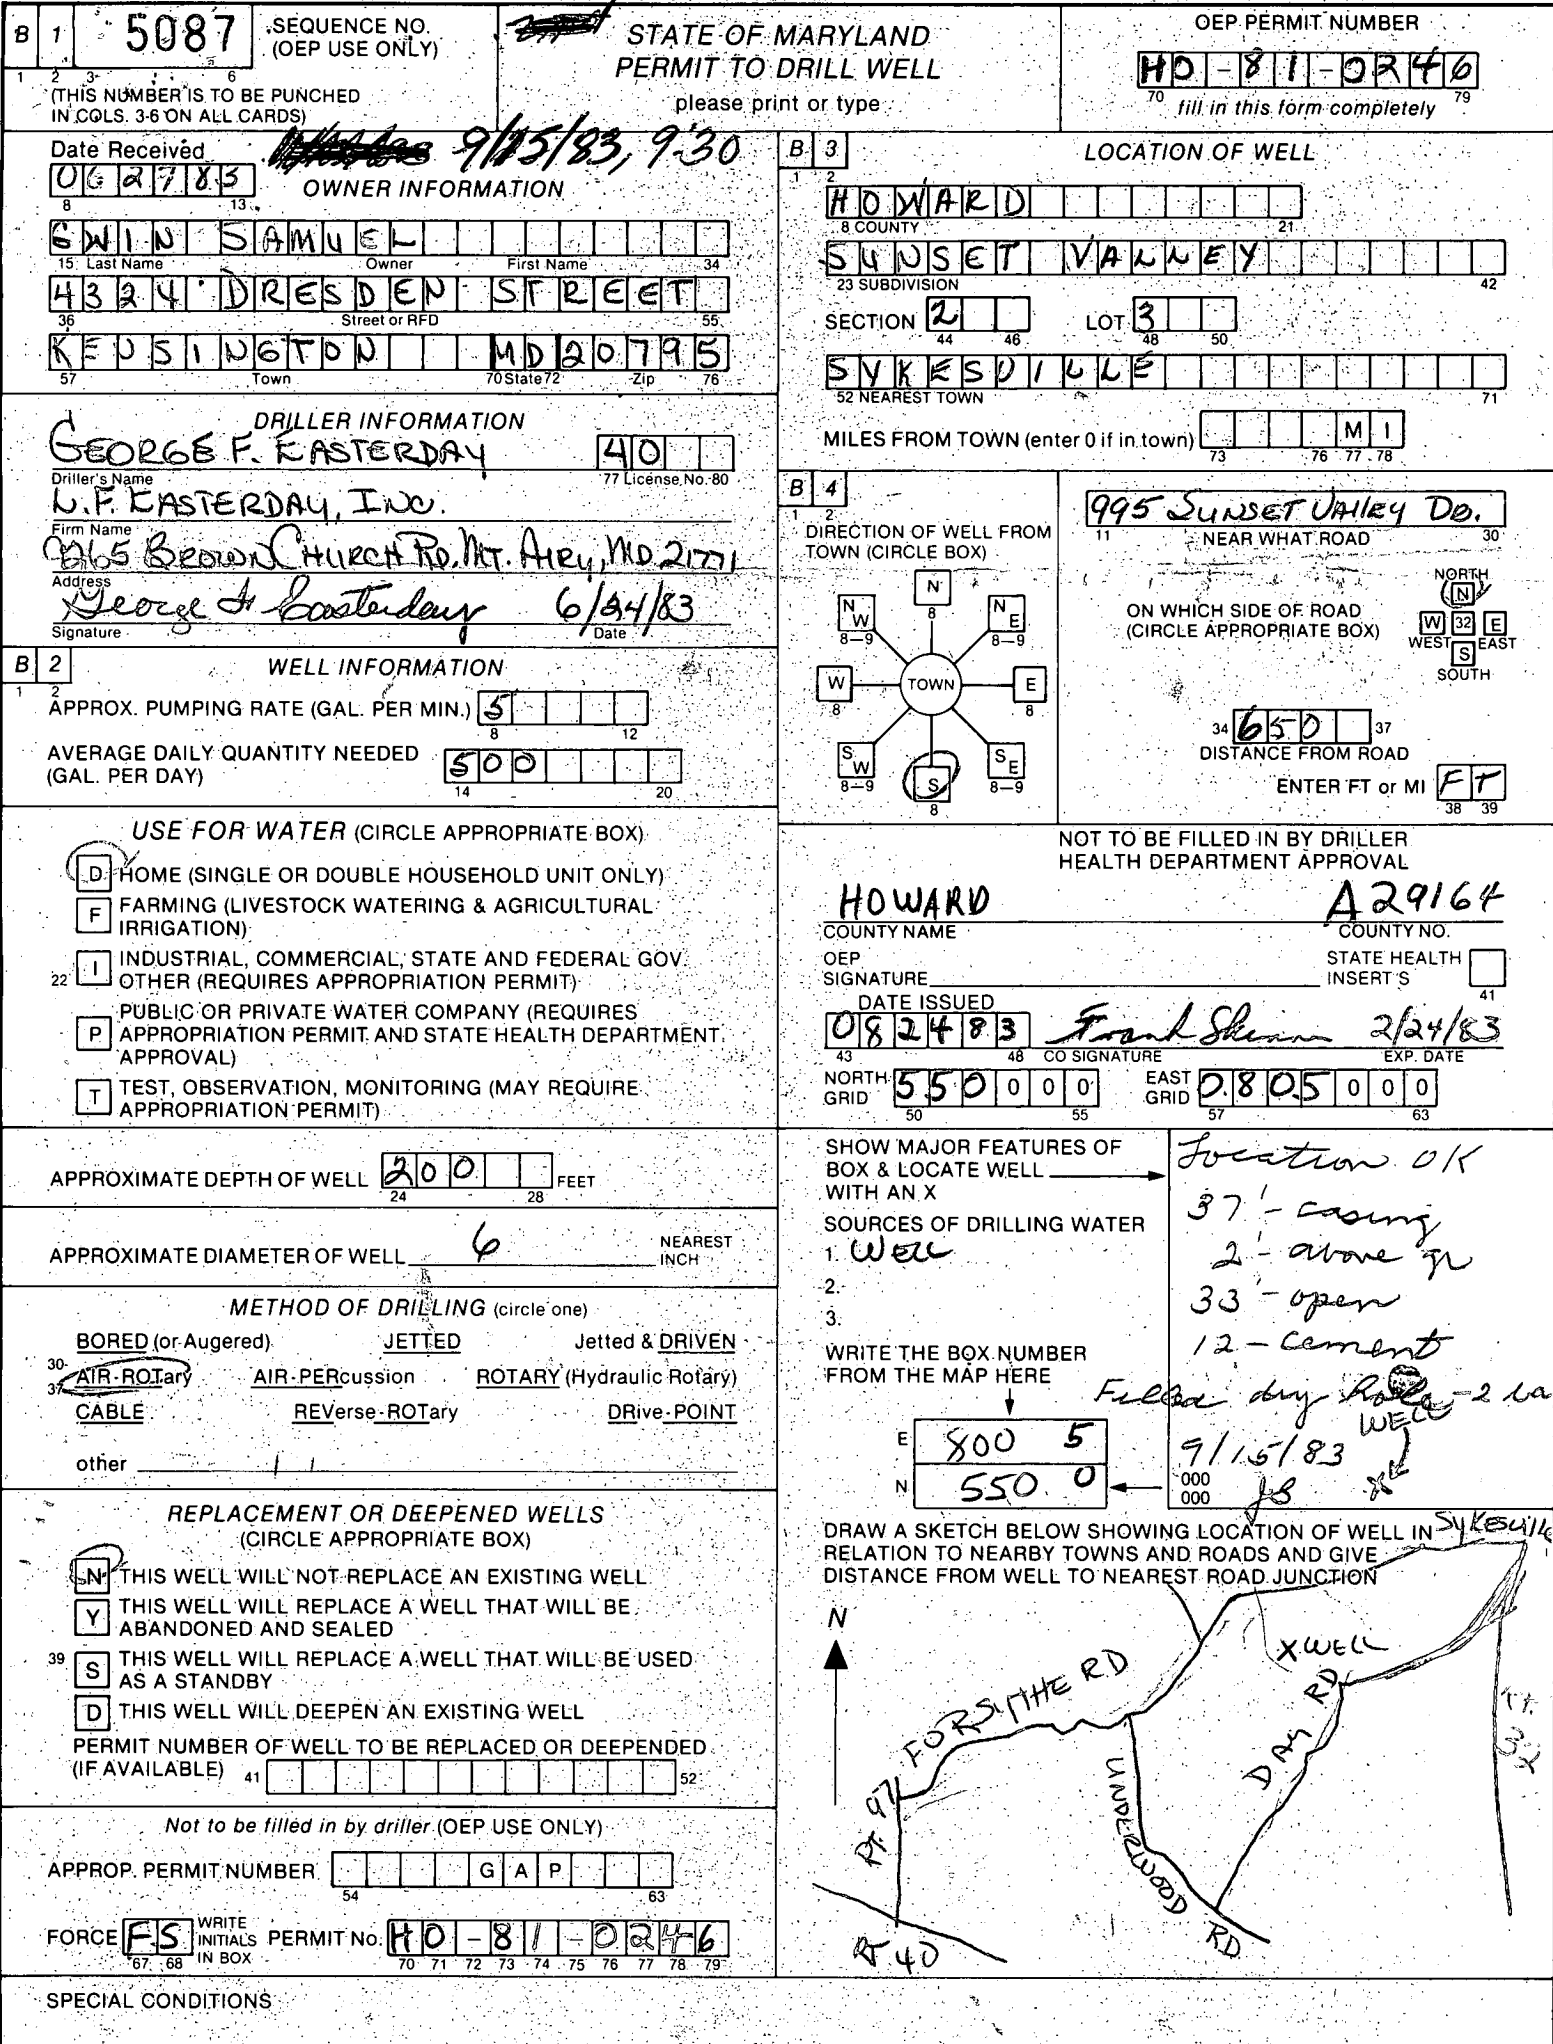 B 1 5087 SEQUENCE NO. (OEP USE ONLY)
1 2 3 6
(THIS NUMBER IS TO BE PUNCHED
IN COLS. 3-6 ON ALL CARDS)
STATE OF MARYLAND
PERMIT TO DRILL WELL
please print or type
OEP PERMIT NUMBER
HO-81-0246
70 79
fill in this form completely
Date Received
9/15/83, 9:30
062783
8 13
OWNER INFORMATION
GWIN SAMUEL
15 Last Name Owner First Name 34
4324 DRESDEN STREET
36 Street or RFD 55
KENSINGTON MD 20795
57 Town 70 State 72 Zip 76
DRILLER INFORMATION
GEORGE F. EASTERDAY 40
Driller's Name 77 License No. 80
L.F. EASTERDAY, INC.
Firm Name
9265 BROWN CHURCH RD. MT. AIRY, MD 21771
Address
George F Easterday 6/24/83
Signature Date
B 2 WELL INFORMATION
1 2
APPROX. PUMPING RATE (GAL. PER MIN.) 5
8 12
AVERAGE DAILY QUANTITY NEEDED
(GAL. PER DAY) 500
14 20
USE FOR WATER (CIRCLE APPROPRIATE BOX)
D HOME (SINGLE OR DOUBLE HOUSEHOLD UNIT ONLY)
F FARMING (LIVESTOCK WATERING & AGRICULTURAL
IRRIGATION)
22 I INDUSTRIAL, COMMERCIAL, STATE AND FEDERAL GOV.
OTHER (REQUIRES APPROPRIATION PERMIT)
P PUBLIC OR PRIVATE WATER COMPANY (REQUIRES
APPROPRIATION PERMIT AND STATE HEALTH DEPARTMENT
APPROVAL)
T TEST, OBSERVATION, MONITORING (MAY REQUIRE
APPROPRIATION PERMIT)
APPROXIMATE DEPTH OF WELL 200 FEET
24 28
APPROXIMATE DIAMETER OF WELL 6 NEAREST
INCH
METHOD OF DRILLING (circle one)
BORED (or Augered) JETTED Jetted & DRIVEN
30-37 AIR-ROTary AIR-PERcussion ROTARY (Hydraulic Rotary)
CABLE REVerse-ROTary DRive-POINT
other
REPLACEMENT OR DEEPENED WELLS
(CIRCLE APPROPRIATE BOX)
N THIS WELL WILL NOT REPLACE AN EXISTING WELL
Y THIS WELL WILL REPLACE A WELL THAT WILL BE
ABANDONED AND SEALED
39 S THIS WELL WILL REPLACE A WELL THAT WILL BE USED
AS A STANDBY
D THIS WELL WILL DEEPEN AN EXISTING WELL
PERMIT NUMBER OF WELL TO BE REPLACED OR DEEPENDED
(IF AVAILABLE) 41 52
Not to be filled in by driller (OEP USE ONLY)
APPROP. PERMIT NUMBER GAP
54 63
FORCE FS WRITE INITIALS IN BOX PERMIT No. HO-81-0246
67 68 70 71 72 73 74 75 76 77 78 79
SPECIAL CONDITIONS
B 3 LOCATION OF WELL
1 2
HOWARD
8 COUNTY 21
SUNSET VALLEY
23 SUBDIVISION 42
SECTION 2 LOT 3
44 46 48 50
SYKESVILLE
52 NEAREST TOWN 71
MILES FROM TOWN (enter 0 if in town) MI
73 76 77 78
B 4
1 2
DIRECTION OF WELL FROM
TOWN (CIRCLE BOX)
N
8
NW NE
8-9 8-9
W TOWN E
8 8
SW S SE
8-9 8 8-9
995 SUNSET VAllEY DR.
11 NEAR WHAT ROAD 30
ON WHICH SIDE OF ROAD
(CIRCLE APPROPRIATE BOX)
NORTH
N
W 32 E
WEST EAST
S
SOUTH
34 650 37
DISTANCE FROM ROAD
ENTER FT or MI FT
38 39
NOT TO BE FILLED IN BY DRILLER
HEALTH DEPARTMENT APPROVAL
HOWARD A29164
COUNTY NAME COUNTY NO.
OEP
SIGNATURE
STATE HEALTH
INSERT S
41
DATE ISSUED
082483 Frank Skinner 2/24/83
43 48 CO SIGNATURE EXP. DATE
NORTH GRID 550 000 EAST GRID 0805 000
50 55 57 63
SHOW MAJOR FEATURES OF
BOX & LOCATE WELL
WITH AN X
SOURCES OF DRILLING WATER
1. WELL
2.
3.
WRITE THE BOX NUMBER
FROM THE MAP HERE
E 800 5
N 550 0
Location OK
37' - casing
2' - above gr
33' - open
12 - cement
Filled dry hole - 2
WELL
9/15/83
000
000 JB X
DRAW A SKETCH BELOW SHOWING LOCATION OF WELL IN
RELATION TO NEARBY TOWNS AND ROADS AND GIVE
DISTANCE FROM WELL TO NEAREST ROAD JUNCTION
Sykesville
N
X WELL
FORSYTHE RD
DAY RD
UNDERWOOD RD
RT. 97
RT 40
rt. 32